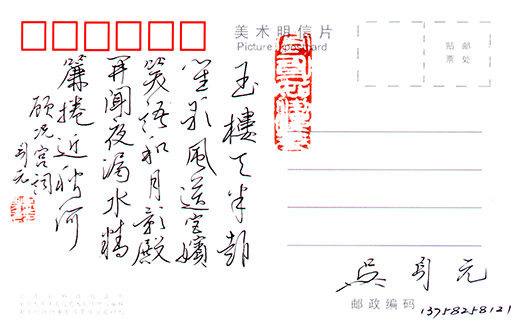 美术明信片
Picture postcard
贴邮
票处
玉樓天半起
笙歌風送宮嬪
笑语和月影殿
开聞夜漏水精
簾捲近秋河
顾况宫词
引元
吳引元
邮政编码
13758258121